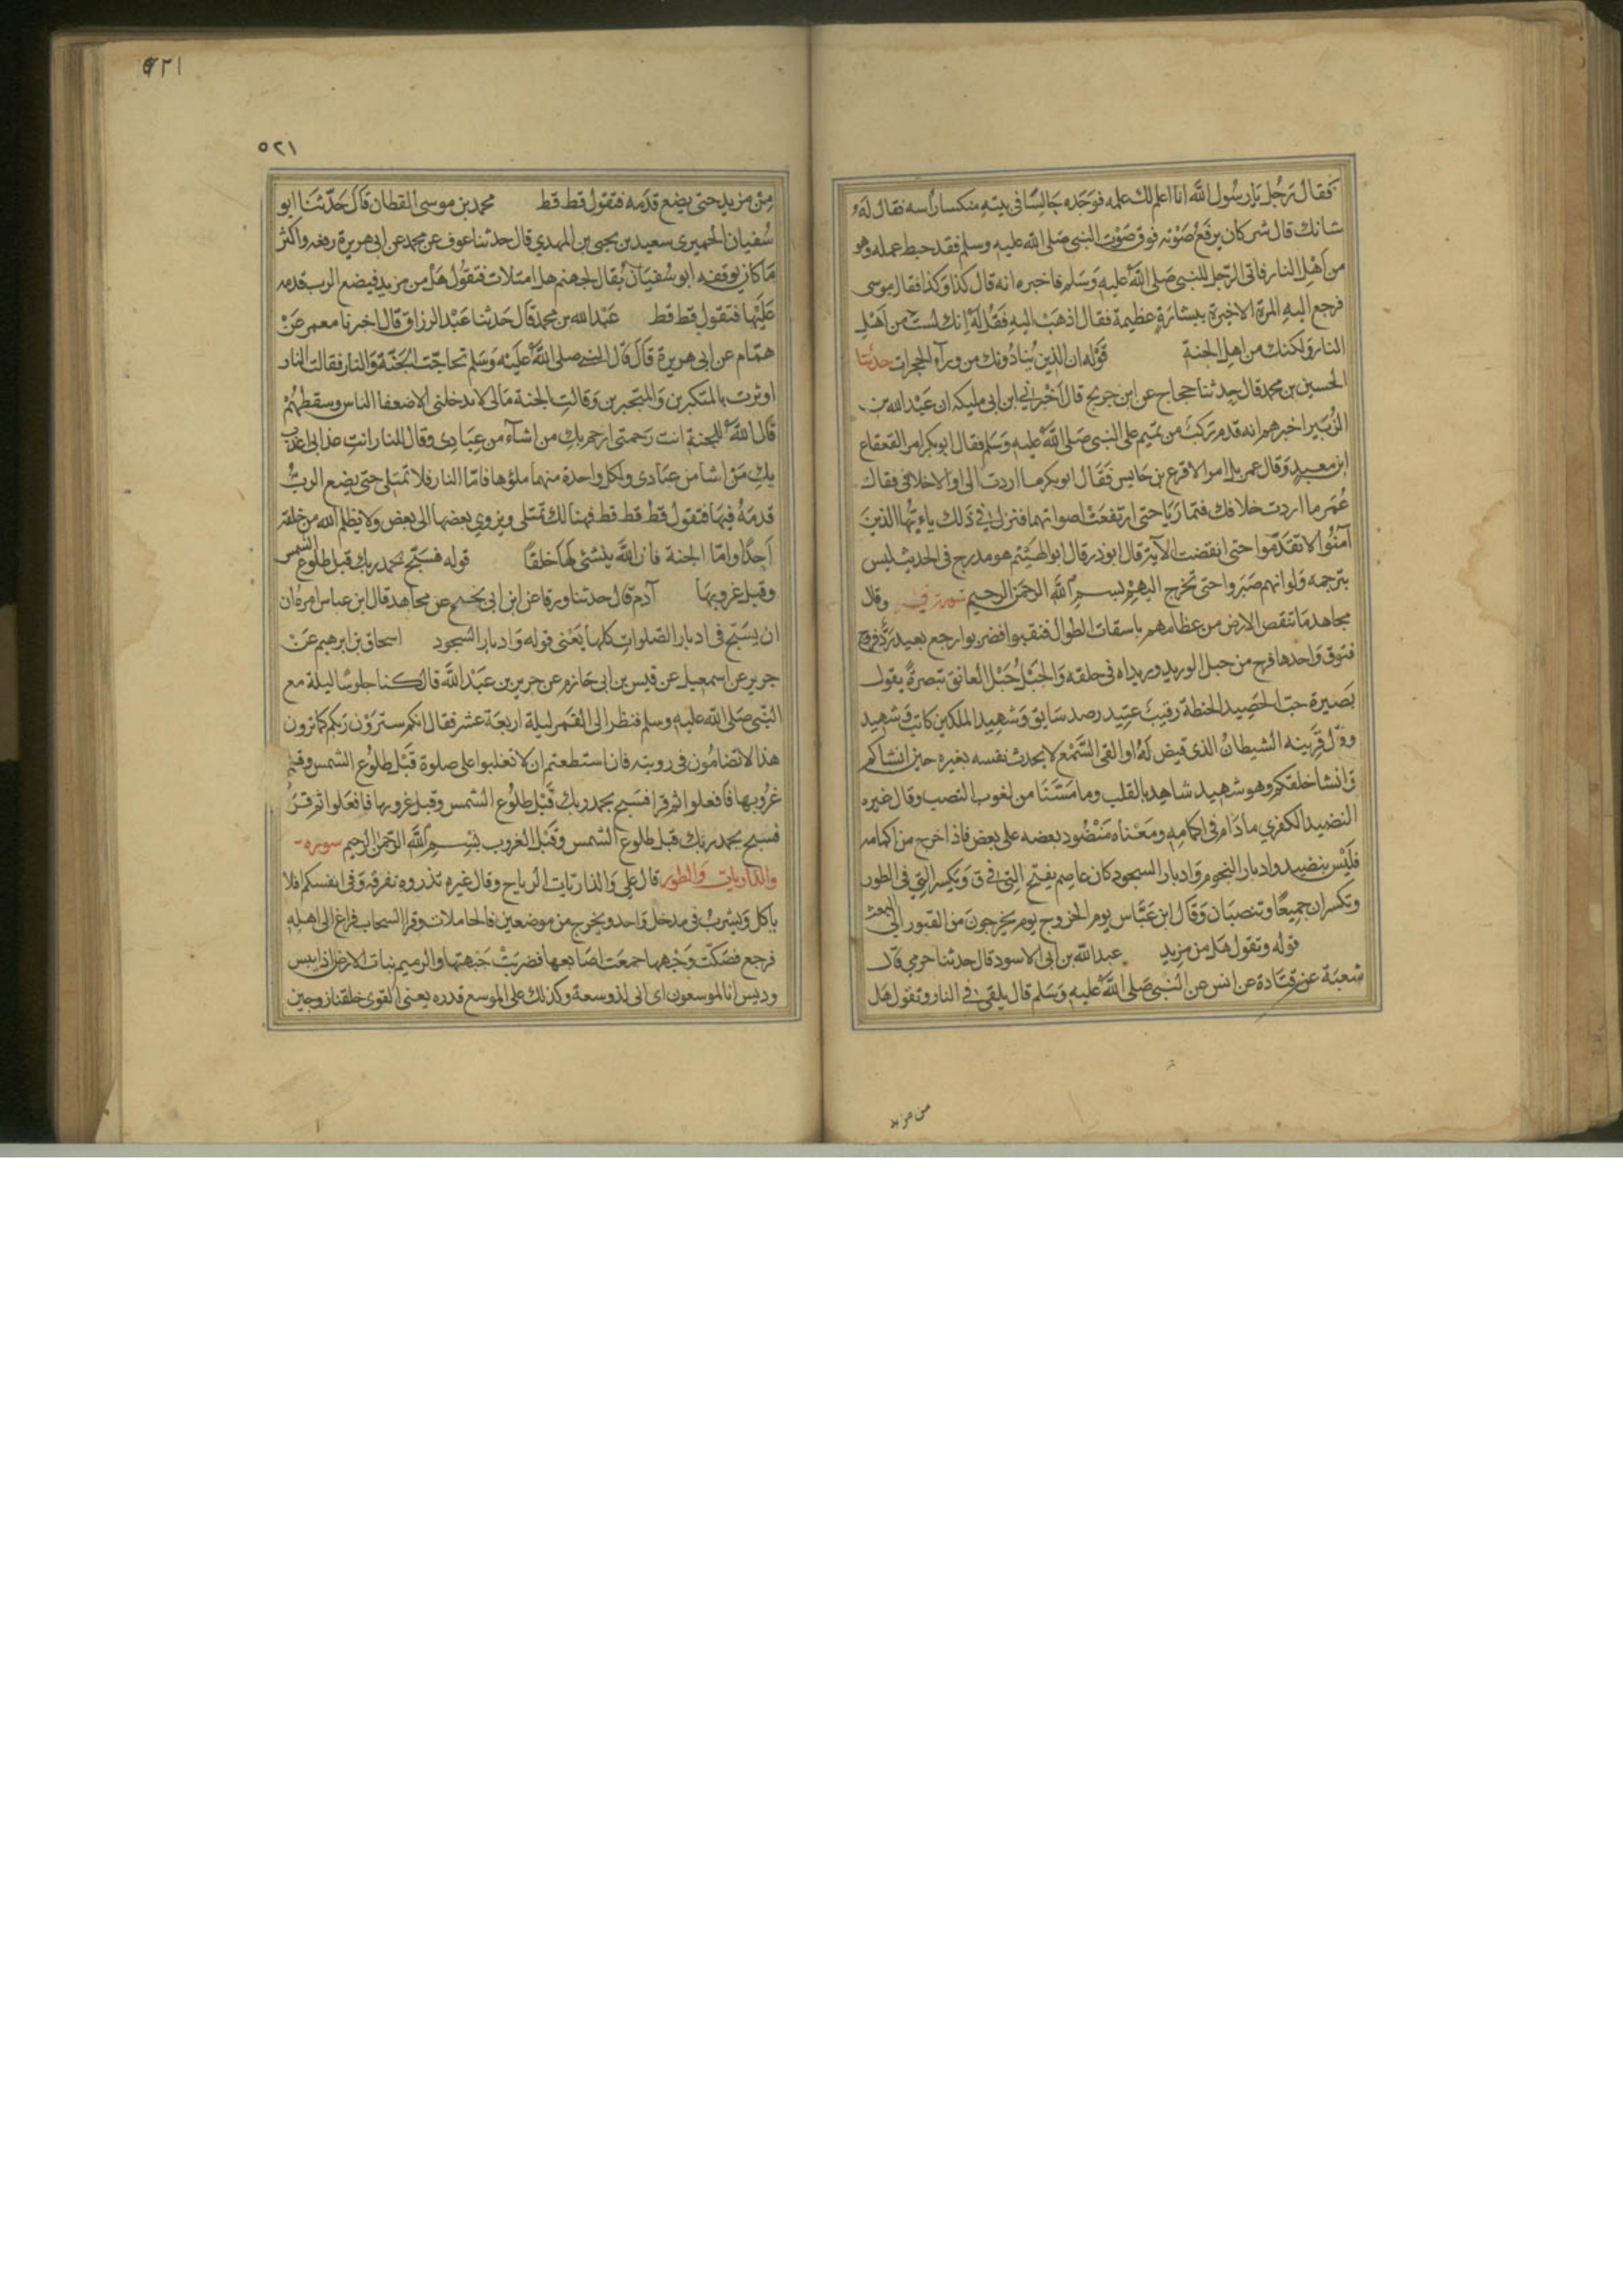 فقال رجل يا رسول الله انا اعلم لك علمه فوجده جالسًا في بيته منكسا راسه فقال له
شانك قال شر كان يرفع صوته فوق صوت النبي صلى الله عليه وسلم فقد حبط عمله وهو
من اهل النار فاتى الرجل للنبي صلى الله عليه وسلم فاخبره انه قال كذا وكذا فقال موسى
فرجع اليه المرة الاخيرة ببشارة عظيمة فقال اذهب اليه فقل له انك لست من اهل
النار ولكنك من اهل الجنة قوله ان الذين ينادونك من وراء الحجرات حدثنا
الحسين بن محمد قال حدثنا حجاج عن ابن جريج قال اخبرني ابن ابي مليكه ان عبد الله بن
الزبير اخبرهم انه قدم ركب من تميم على النبي صلى الله عليه وسلم فقال ابو بكر امر القعقاع
ابن معبد وقال عمر بل امر الاقرع بن حابس فقال ابو بكر ما اردت الى او الا خلافي فقال
عمر ما اردت خلافك فتماريا حتى ارتفعت اصواتهما فنزل في ذلك يا ايها الذين
آمنوا لا تقدموا حتى انقضت الآية قال ابو ذر قال ابو الهيثم هو مدرج في الحديث ليس
بترجمه ولو انهم صبروا حتى تخرج اليهم بسم الله الرحمن الرحيم سورة ق وقال
مجاهد ما تنقص الارض من عظامهم باسقات الطوال فنقبوا فضربوا رجع بعيد رد فروج
فتوق واحدها فرج من حبل الوريد وريداه في حلقه والحبل حبل العاتق تبصرة يقول
بصيرة حب الحصيد الحنطة رقيب عتيد رصد سايق وشهيد الملكين كاتب وشهيد
وقال قرينه الشيطان الذي قيض له او القى السمع لا يحدث نفسه بغيره حين انشاكم
وانشا خلقكم وهو شهيد شاهد بالقلب وما مسنا من لغوب النصب وقال غيره
النضيد الكفري ما دام في اكمامه ومعناه منضود بعضه على بعض فاذا خرج من اكمامه
فليس بنضيد وادبار النجوم وادبار السجود كان عاصم يفتح التي في ق ويكسر التي في الطور
وتكسران جميعًا وتنصبان وقال ابن عباس يوم الخروج يوم يخرجون من القبور الى البعث
قوله وتقول هل من مزيد عبد الله بن ابي الاسود قال حدثنا حرمي قال
شعبة عن قتادة عن انس عن النبي صلى الله عليه وسلم قال يلقى في النار وتقول هل
من مزيد
٥٢١
٥٢١
من مزيد حتى يضع قدمه فتقول قط قط محمد بن موسى القطان قال حدثنا ابو
سفيان الحميري سعيد بن يحيى بن المهدي قال حدثنا عوف عن محمد عن ابي هريرة رفعه واكثر
ما كان يوقفه ابو سفيان يقال لجهنم هل امتلات فتقول هل من مزيد فيضع الرب قدمه
عليها فتقول قط قط عبد الله بن محمد قال حدثنا عبد الرزاق قال اخبرنا معمر عن
همام عن ابي هريرة قال قال النبي صلى الله عليه وسلم تحاجت الجنة والنار فقالت النار
اوثرت بالمتكبرين والمتجبرين وقالت الجنة مالي لا يدخلني الا ضعفا الناس وسقطهم
قال الله للجنة انت رحمتي ارحم بك من اشاء من عبادي وقال للنار انت عذابي اعذب
بك من اشا من عبادي ولكل واحدة منهما ملؤها فاما النار فلا تمتلي حتى يضع الرب
قدمه فيها فتقول قط قط قط فهنالك تمتلي ويزوي بعضها الى بعض ولا يظلم الله من خلقه
احدًا واما الجنة فان الله ينشئ لها خلقًا قوله فسبح بحمد ربك قبل طلوع الشمس
وقبل غروبها آدم قال حدثنا ورقا عن ابن ابي نجيح عن مجاهد قال ابن عباس امره ان
ان يسبح في ادبار الصلوات كلها يعني قوله وادبار السجود اسحاق بن ابرهيم عن
جرير عن اسمعيل عن قيس بن ابي حازم عن جرير بن عبد الله قال كنا جلوسًا ليلة مع
النبي صلى الله عليه وسلم فنظر الى القمر ليلة اربعة عشر فقال انكم سترون ربكم كما ترون
هذا لا تضامون في رويته فان استطعتم ان لا تغلبوا على صلوة قبل طلوع الشمس وقبل
غروبها فافعلوا ثم قرا فسبح بحمد ربك قبل طلوع الشمس وقبل غروبها فافعلوا ثم قرا
فسبح بحمد ربك قبل طلوع الشمس وقبل الغروب بسم الله الرحمن الرحيم سوره
والذاريات والطور قال علي والذاريات الرياح وقال غيره تذروه تفرقه وفي انفسكم افلا
ياكل ويشرب في مدخل واحد ويخرج من موضعين فالحاملات وقرا السحاب فراغ الى اهله
فرجع فصكت وجهها جمعت اصابعها فضربت جبهتها والرميم نبات الارض اذا يبس
وديس انا لموسعون اي اني لذو سعة وكذلك على الموسع قدره يعني القوي خلقنا زوجين